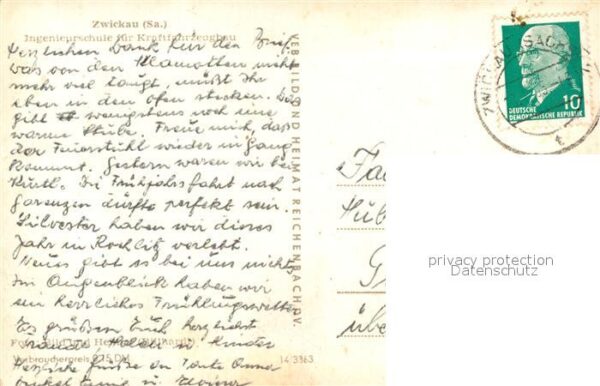 Zwickau (Sa.)
Ingenieurschule für Kraftfahrzeugbau
Herzlichen Dank für den Brief,
was von den Klamotten nicht
mehr viel taugt, müßt Ihr
eben in den Ofen stecken. Das
gibt wenigstens noch eine
warme Stube. Freue mich, daß
der Feuerstuhl wieder in Gang
kommt. Gestern waren wir bei
Kurtl. Die Frühjahrsfahrt nach
dürfte perfekt sein.
Silvester haben wir dieses
Jahr in Rochlitz verlebt.
Neues gibt es bei uns nicht,
im Augenblick haben wir
ein herrliches Frühlingswetter
Es grüßen Euch herzlichst
u. Kinder
Herzliche Grüße an Tante Anna
Onkel u.
Foto: Bild und Heimat
Verbraucherpreis 0,15 DM
14/3363
VEB BILD UND HEIMAT REICHENBACH I.V.
DEUTSCHE
DEMOKRATISCHE REPUBLIK
10
ZWICKAU (SACHS)
privacy protection
Datenschutz